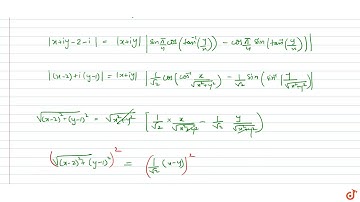 |x+iy-2-i| = |x+iy| |sin π/4 cos(tan⁻¹(y/x)) - cos π/4 sin(tan⁻¹(y/x))|
|(x-2)+i(y-1)| = |x+iy| |1/√2 cos(cos⁻¹ x/√(x²+y²)) - 1/√2 sin(sin⁻¹ y/√(x²+y²))|
√((x-2)²+(y-1)²) = √(x²+y²) [1/√2 × x/√(x²+y²) - 1/√2 y/√(x²+y²)]
(√((x-2)²+(y-1)²))² = (1/√2 (x-y))²
doubtnut